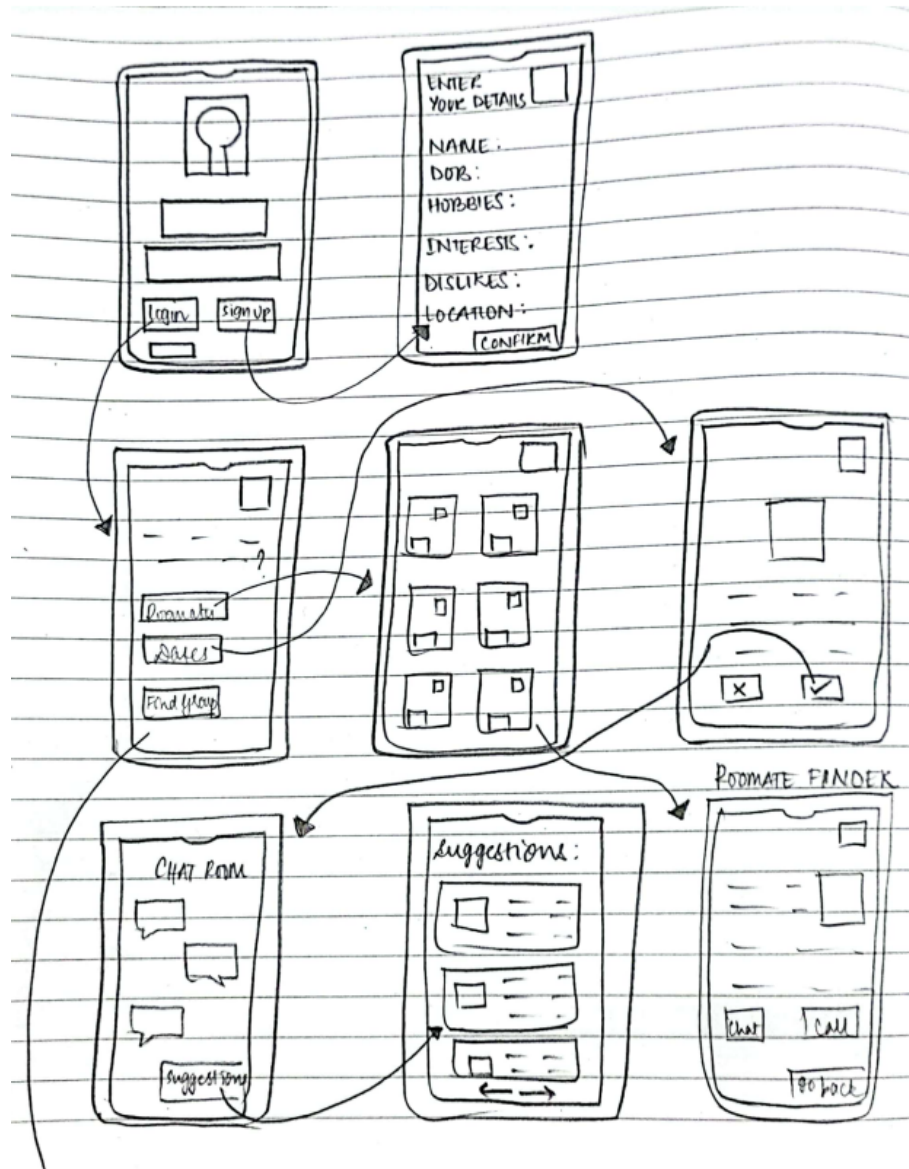 ENTER
YOUR DETAILS
NAME:
DOB:
HOBBIES:
INTERESTS:
DISLIKES:
LOCATION:
CONFIRM
login
sign up
?
Roomates
Dates
Find Group
ROOMATE FINDER
CHAT ROOM
suggestions
Suggestions:
Chat
Call
go back